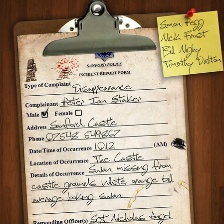 Simon Pegg
Nick Frost
Bill Nighy
Timothy Dalton
SANFORD POLICE
INCIDENT REPORT FORM
Type of Complaint Disappearance
Complainant Peter Ian Staker
Male Female
Address Sanford Castle
Phone
Date/Time of Occurrence (AM)
Location of Occurrence The Castle
Details of Occurrence Swan missing from
castle grounds white orange bill
average looking swan
Responding Officer(s) Sgt Nicholas Angel